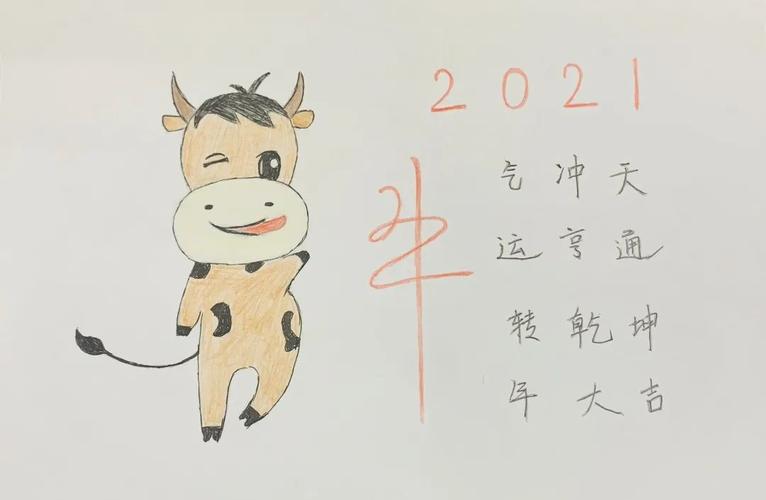 2021
牛
气冲天
运亨通
转乾坤
年大吉